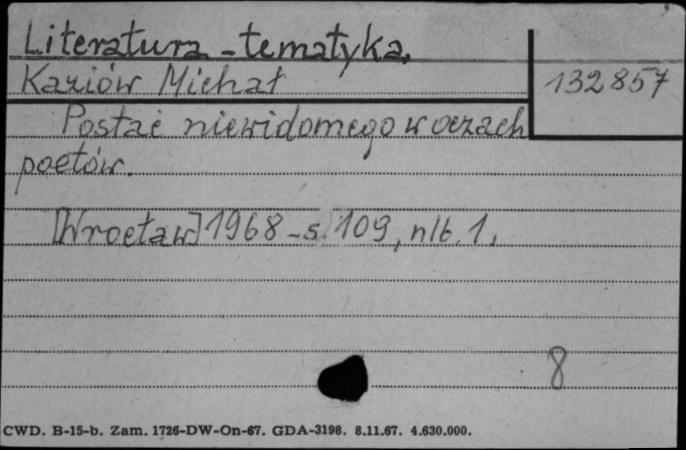 Literatura - tematyka.
Kaziów Michał
132857
Postać niewidomego w oczach
poetów.
[Wrocław] 1968 - s. 109, nlb. 1.
8
CWD. B-15-b. Zam. 1726-DW-On-67. GDA-3198. 8.11.67. 4.630.000.